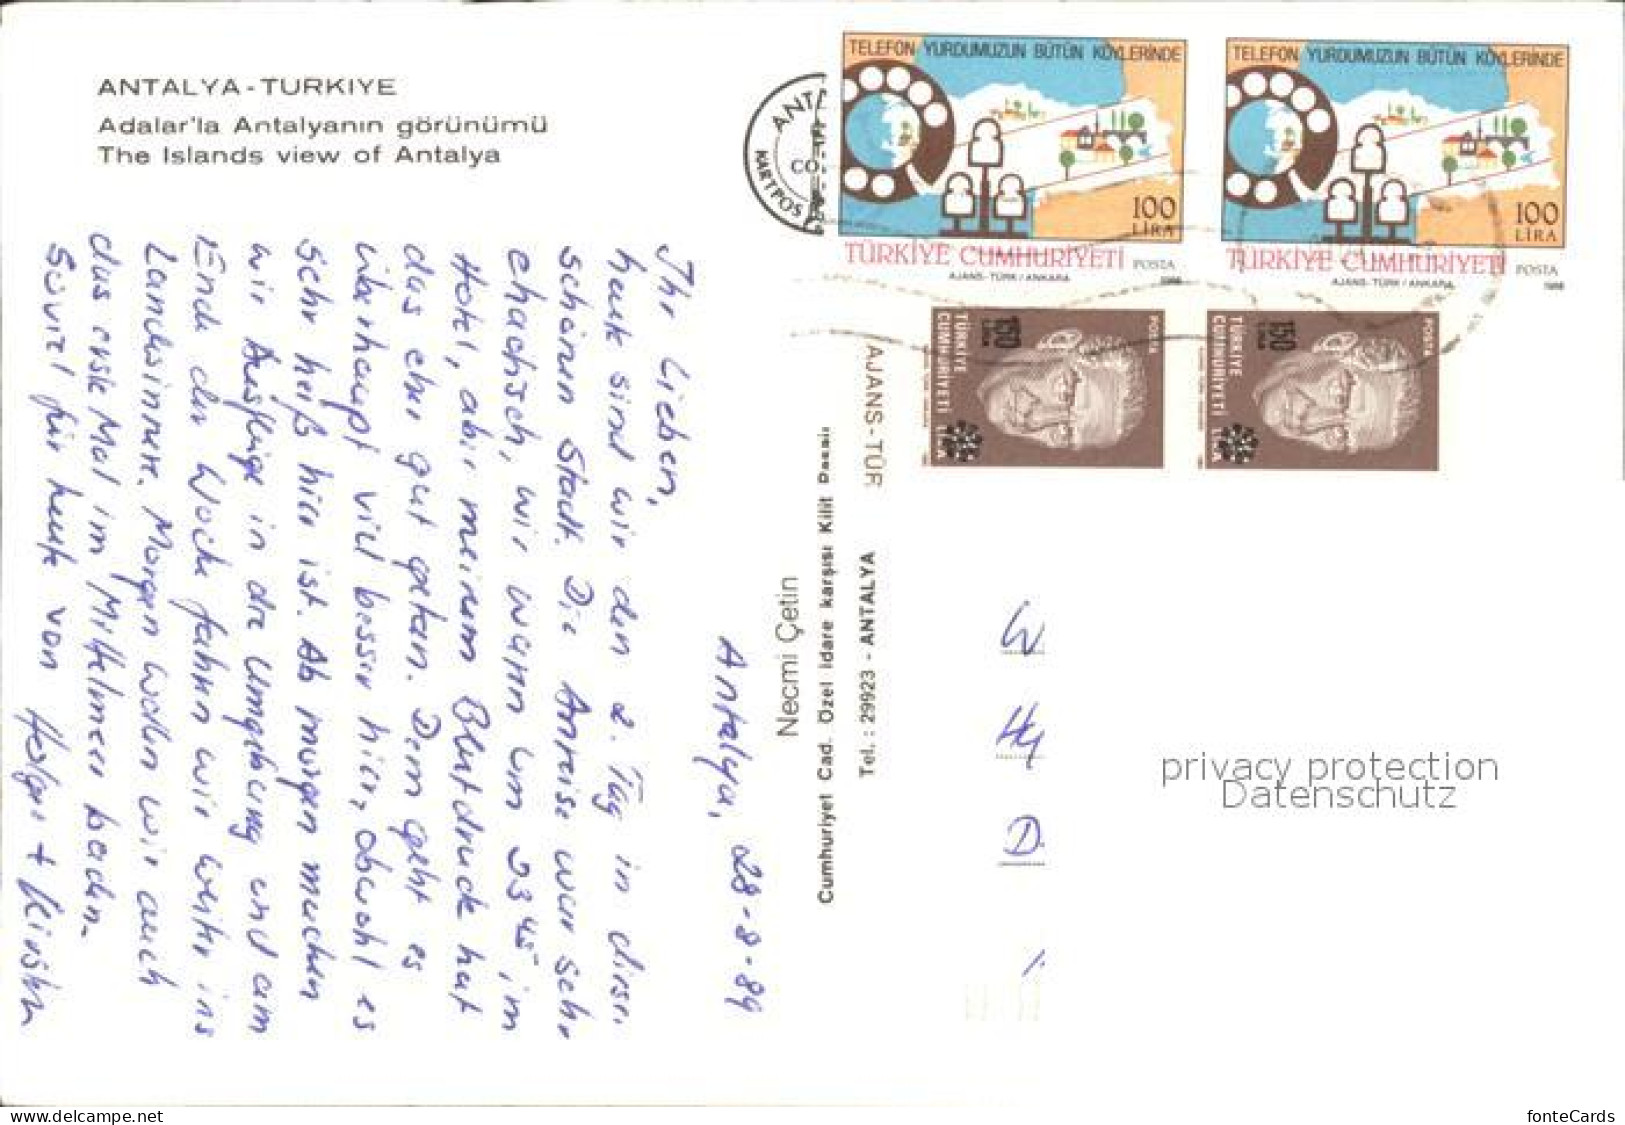 ANTALYA - TURKIYE
Adalar'la Antalyanın görünümü
The Islands view of Antalya
Antalya, 28.8.89
Ihr Lieben,
heute sind wir den 2. Tag in dieser
schönen Stadt. Die Anreise war sehr
chaotisch, wir waren um 23 45 im
Hotel, aber meinem Blutdruck hat
das eher gut getan. Dem geht es
überhaupt viel besser hier, obwohl es
sehr heiß hier ist. Ab morgen machen
wir Ausflüge in die Umgebung und am
Ende der Woche fahren wir weiter ins
Landesinnere. Morgen wollen wir auch
das erste Mal im Mittelmeer baden.
Soviel für heute von Holger + Kirsten
Necmi Çetin
Cumhuriyet Cad. Özel idare karşısı Kilit Pasajı
Tel.: 29923 - ANTALYA
AJANS-TÜR
ANT
CO
KARTPOS
TELEFON YURDUMUZUN BÜTÜN KÖYLERİNDE
100
LİRA
TÜRKİYE CUMHURİYETİ POSTA
AJANS-TÜRK / ANKARA 1988
TELEFON YURDUMUZUN BÜTÜN KÖYLERİNDE
100
LİRA
TÜRKİYE CUMHURİYETİ POSTA
AJANS-TÜRK / ANKARA 1988
TÜRKİYE
CUMHURİYETİ
150
LİRA
POSTA
TÜRKİYE
CUMHURİYETİ
150
LİRA
POSTA
W
Hy
D
privacy protection
Datenschutz
www.delcampe.net
fonteCards